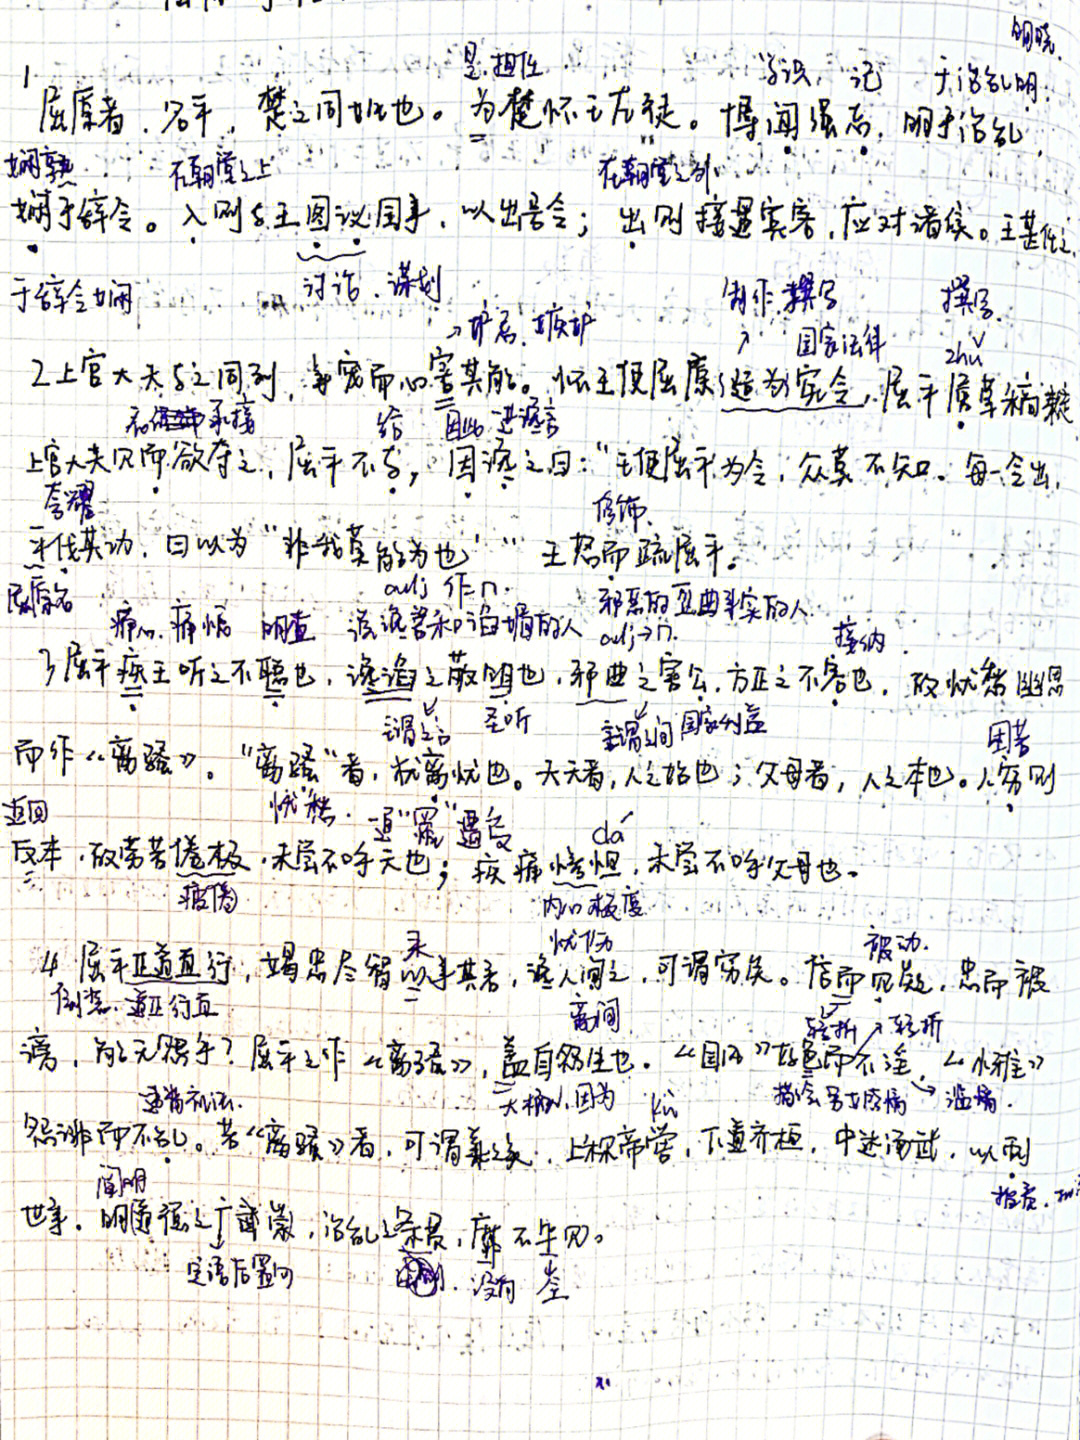 明晓
是.担任 学识 记 于治乱明.
1
屈原者,名平,楚之同姓也。为楚怀王左徒。博闻强志,明于治乱,
娴熟 在朝堂之上 在朝堂之外
娴于辞令。入则与王图议国事,以出号令;出则接遇宾客,应对诸侯。王甚任之.
于辞令娴 讨论.谋划 制作.撰写 撰写.
→妒忌.嫉妒 国家法律 zhǔ
2上官大夫与之同列,争宠而心害其能。怀王使屈原造为宪令,屈平属草稿
承接 给 因此 进谗言
上官大夫见而欲夺之,屈平不与,因谗之曰:“王使屈平为令,众莫不知。每一令出,
夸耀 修饰.
平伐其功,曰以为“非我莫能为也”” 王怒而疏屈平。
屈原名 adj 作n. 邪恶的歪曲事实的人
痛心.痛惜 明查 说谗言和谄媚的人 adj→n. 接纳.
3屈平疾王听之不聪也,谗谄之蔽明也,邪曲之害公,方正之不容也,故忧愁幽思
主谓之间 圣听 主谓之间 国家利益 困苦
而作《离骚》。“离骚”者,犹离忧也。夫天者,人之始也;父母者,人之本也。人穷则
返回 忧愁. 通“罹”遭受 dá
反本,故劳苦倦极,未尝不呼天也;疾痛惨怛,未尝不呼父母也。
疲倦 内心极度
来 忧伤 被动.
4 屈平正道直行,竭忠尽智以事其君,谗人间之,可谓穷矣。信而见疑,忠而被
道正行直 离间 转折 转折
谤,能无怨乎?屈平之作《离骚》,盖自怨生也。《国风》好色而不淫,《小雅》
大概,因为 kù 滥情.
怨诽而不乱。若《离骚》者,可谓兼之矣。上称帝喾,下道齐桓,中述汤武,以刺
阐明
世事。明道德之广崇,治乱之条贯,靡不毕见。
定语后置 没有 全